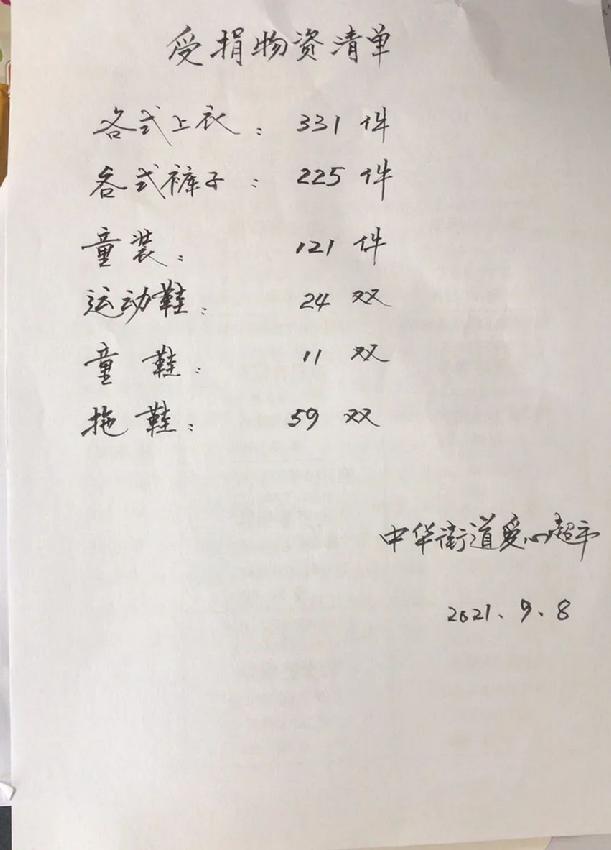 受捐物资清单
各式上衣：331件
各式裤子：225件
童装：121件
运动鞋：24双
童鞋：11双
拖鞋：59双
中华街道爱心超市
2021、9、8